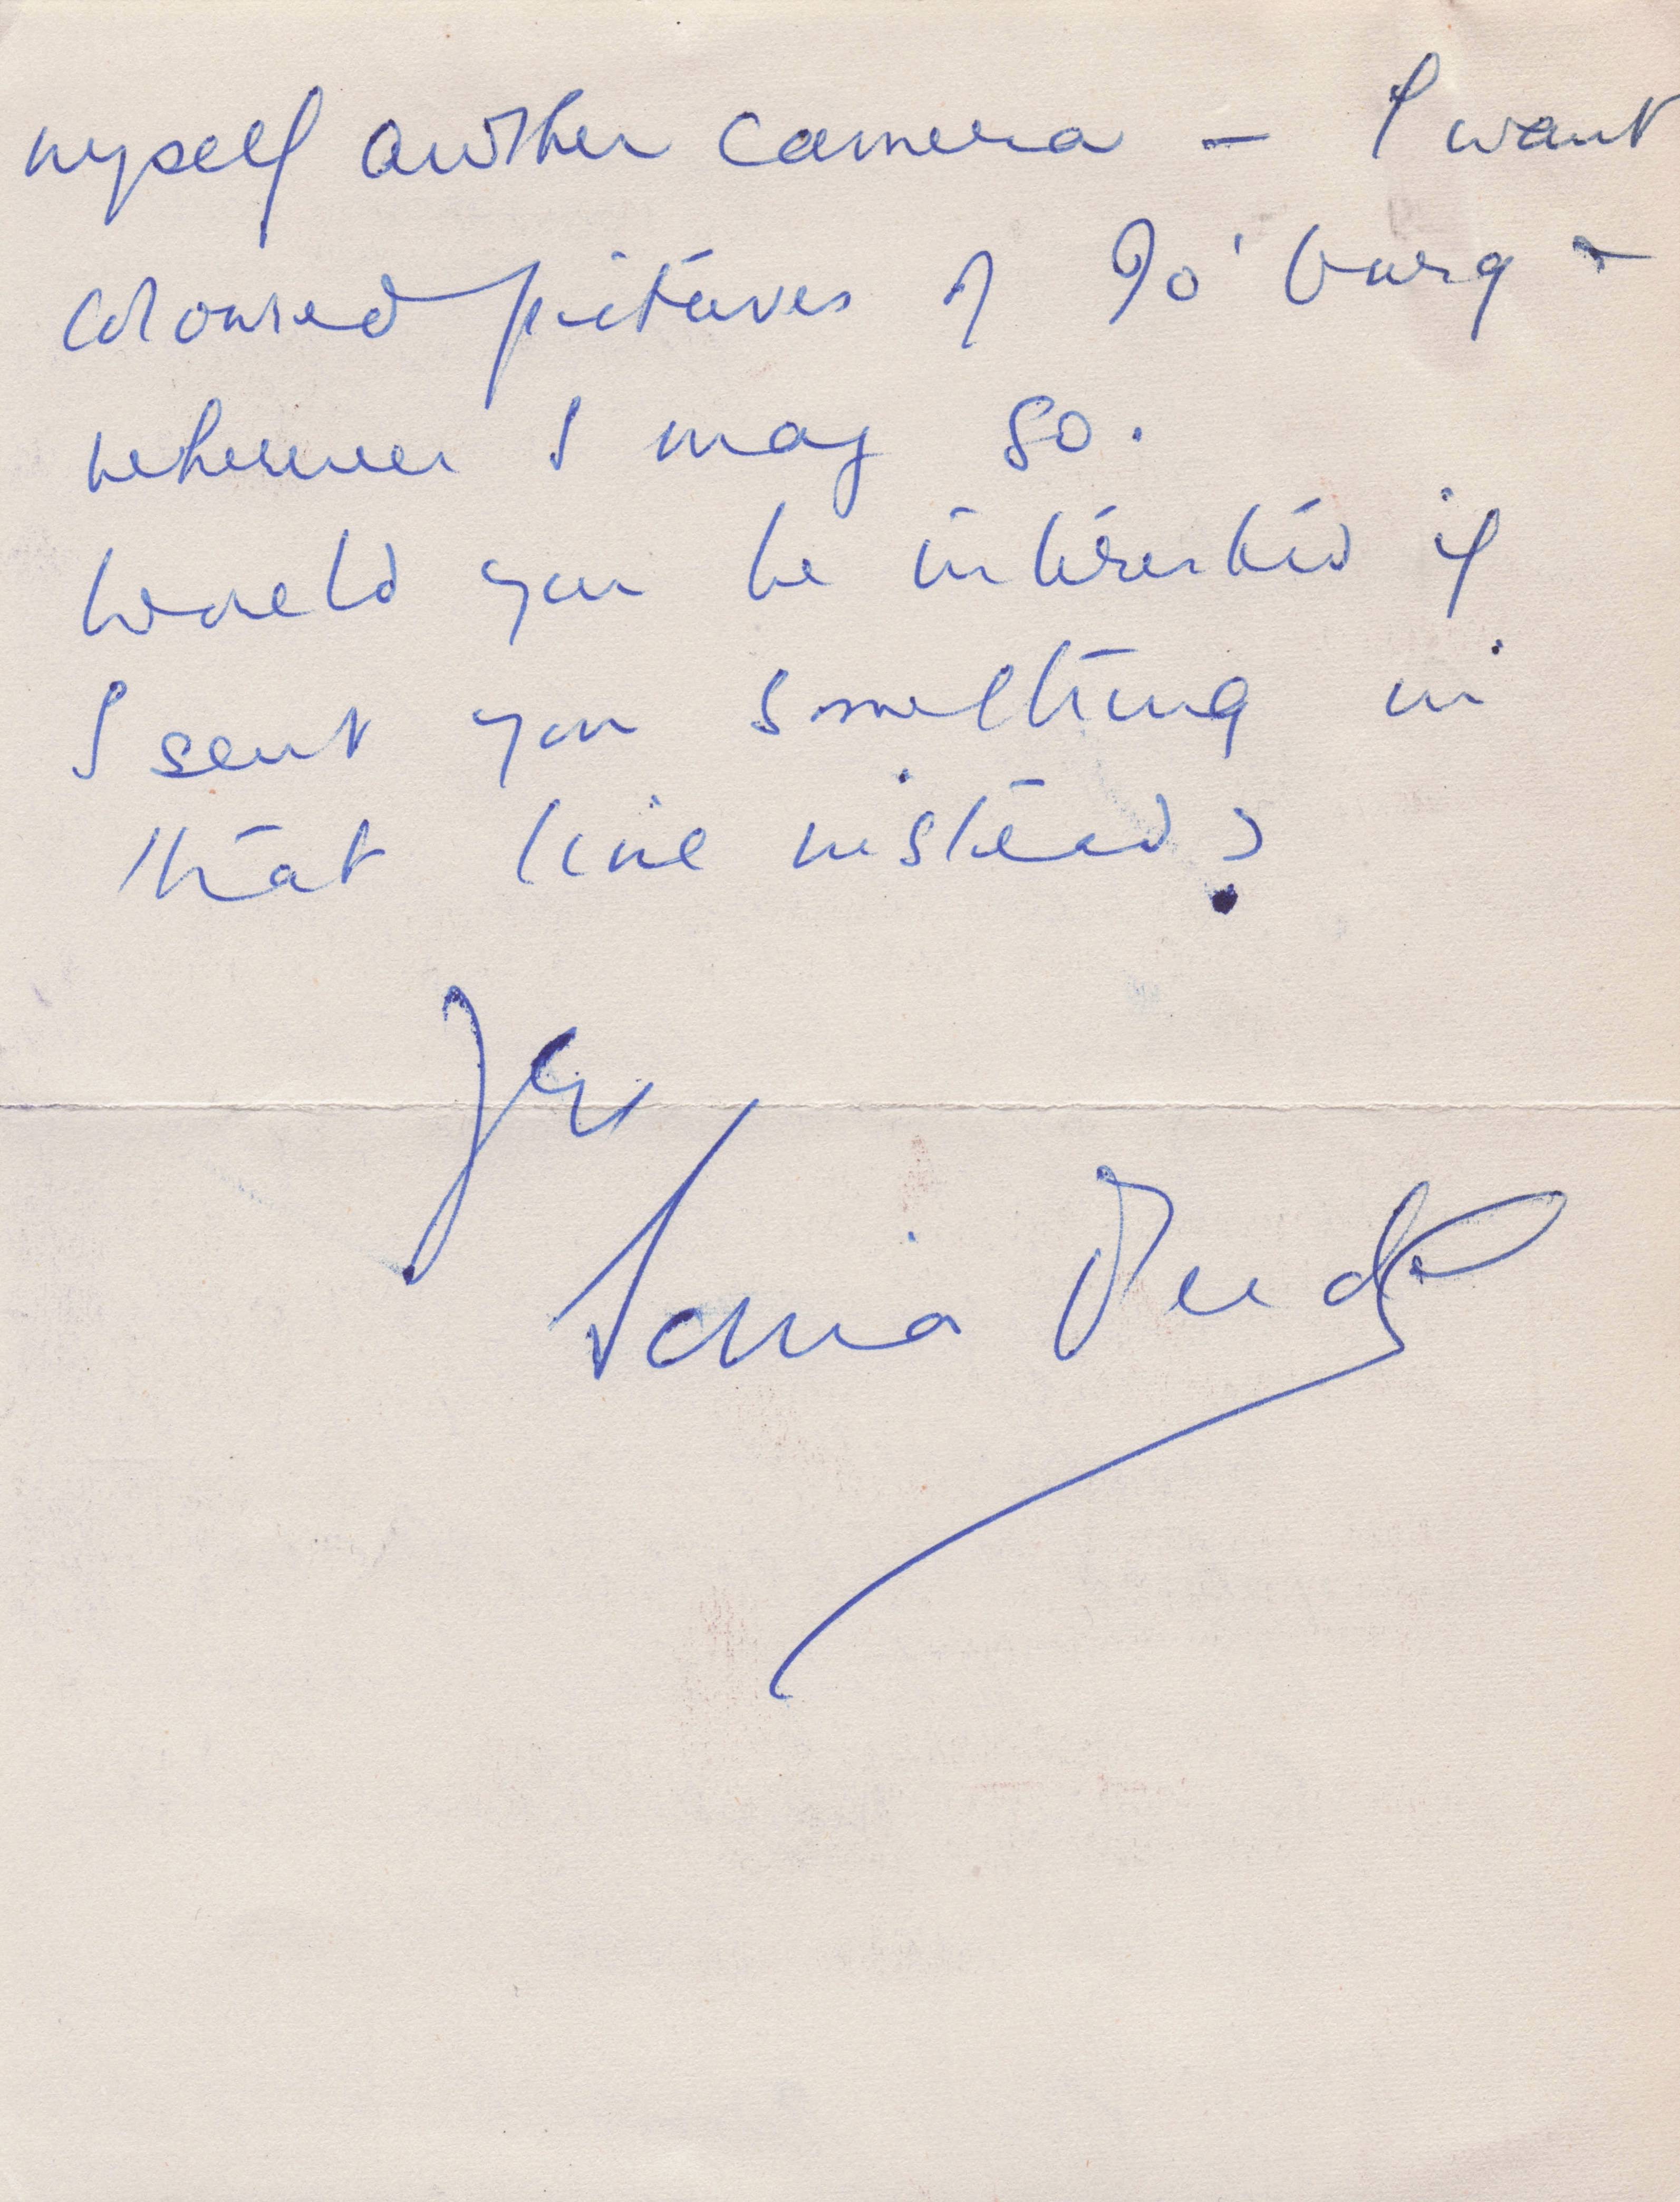 myself another camera – I want
coloured pictures of Jo'burg &
wherever I may go.
Would you be interested if
I sent you something in
that line instead?
Yrs
Sonia